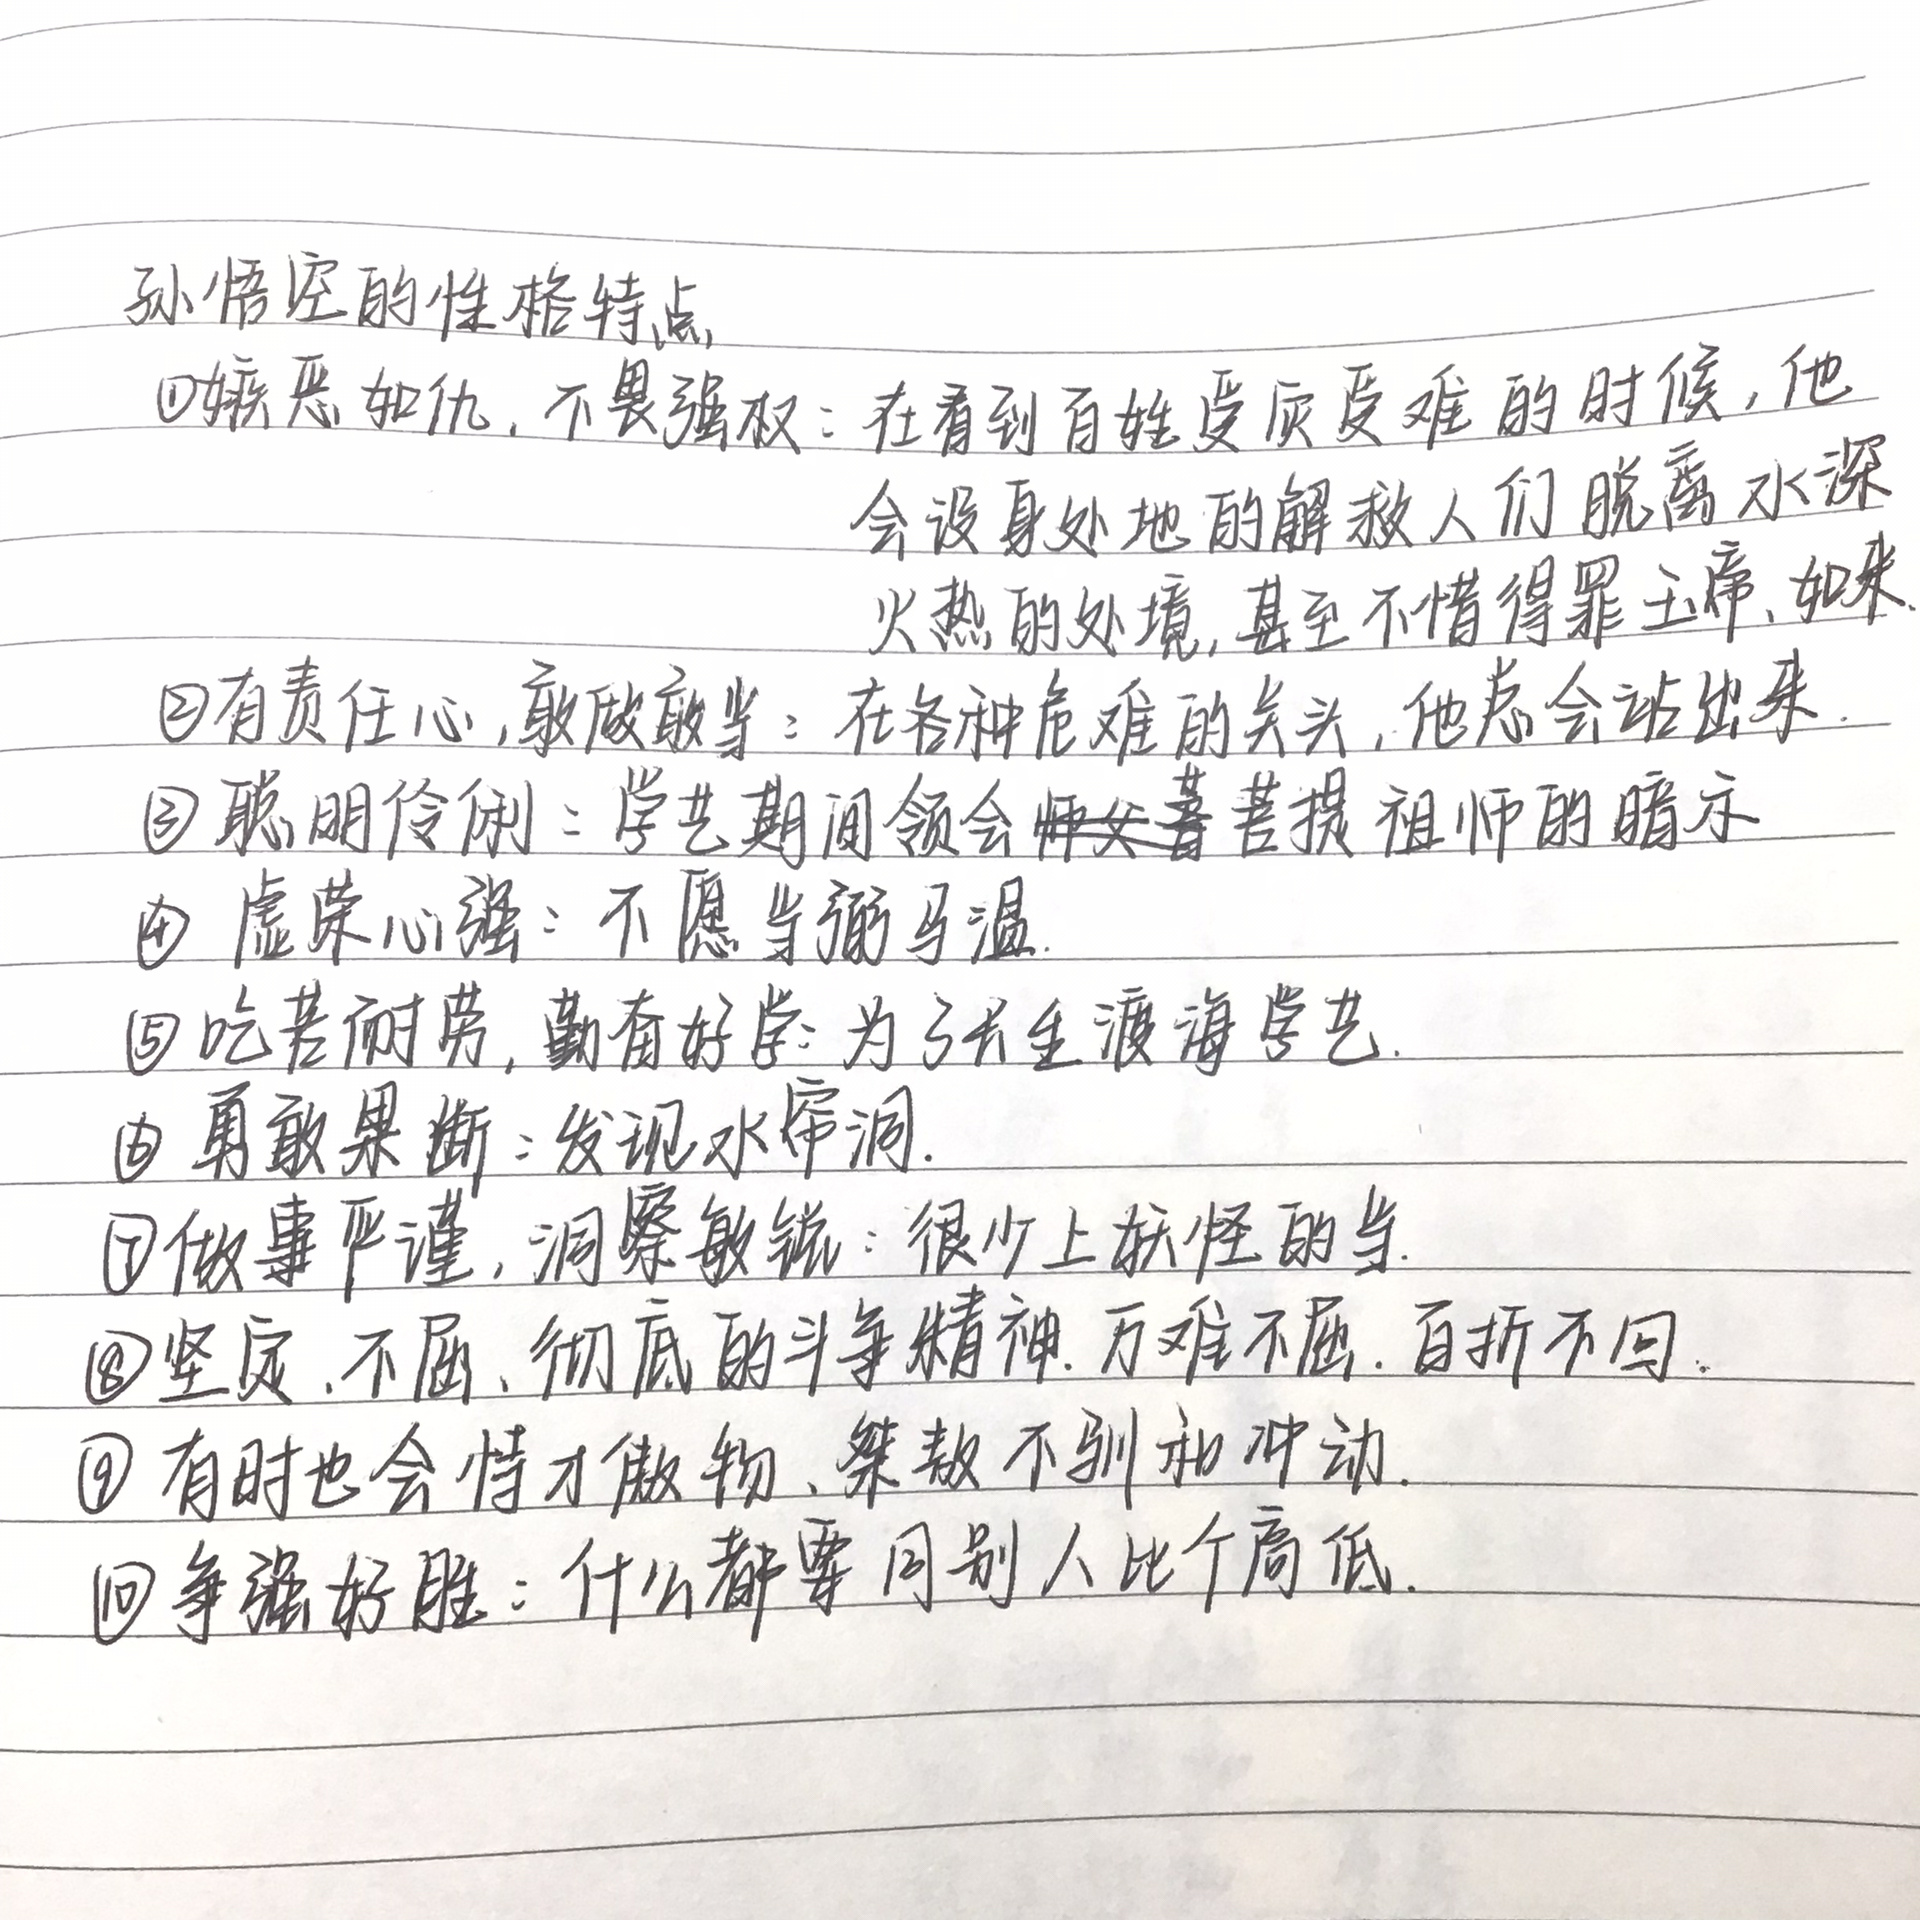 孙悟空的性格特点
①嫉恶如仇，不畏强权：在看到百姓受灾受难的时候，他
会设身处地的解救人们脱离水深
火热的处境，甚至不惜得罪玉帝、如来.
②有责任心，敢做敢当：在各种危难的关头，他总会站出来.
③聪明伶俐：学艺期间领会师父菩菩提祖师的暗示
④虚荣心强：不愿当弼马温.
⑤吃苦耐劳，勤奋好学：为了长生渡海学艺.
⑥勇敢果断：发现水帘洞.
⑦做事严谨，洞察敏锐：很少上妖怪的当.
⑧坚定、不屈、彻底的斗争精神.万难不屈.百折不回.
⑨有时也会恃才傲物、桀敖不驯和冲动.
⑩争强好胜：什么都要同别人比个高低.